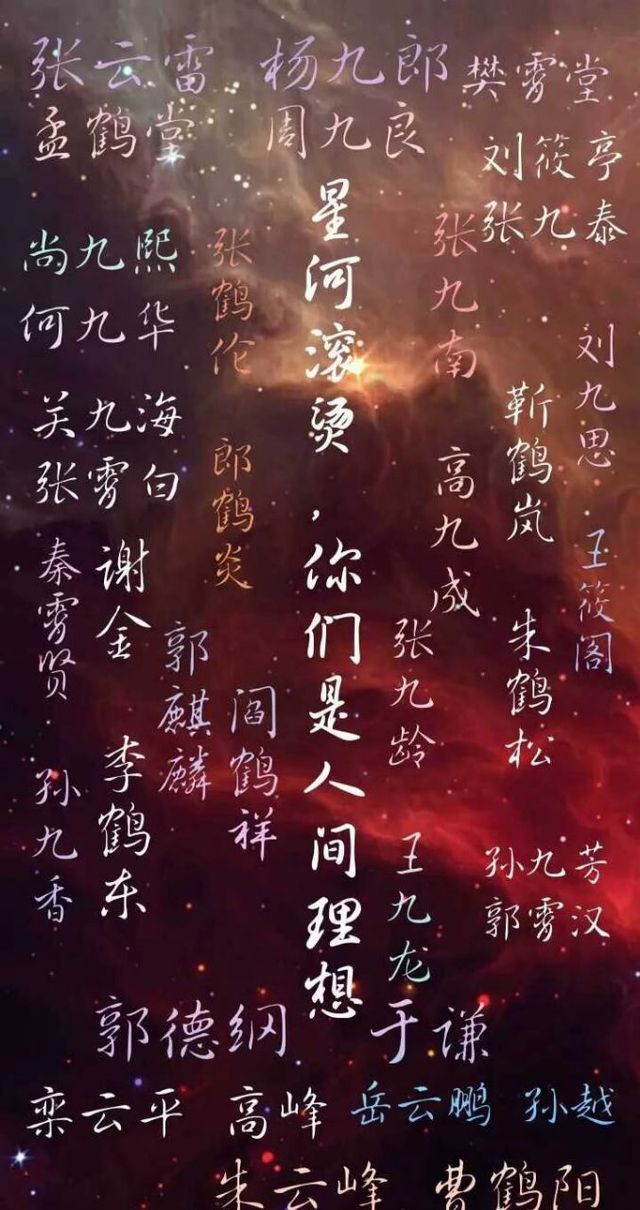 张云雷 杨九郎 樊霄堂
孟鹤堂 周九良
刘筱亭
张九泰
尚九熙
何九华
张鹤伦
星河滚烫，你们是人间理想
张九南
刘九思
关九海
张霄白
郎鹤炎
高九成
靳鹤岚
王筱阁
秦霄贤
谢金
郭麒麟
阎鹤祥
张九龄
朱鹤松
孙九香
李鹤东
王九龙
孙九芳
郭霄汉
郭德纲 于谦
栾云平 高峰 岳云鹏 孙越
朱云峰 曹鹤阳